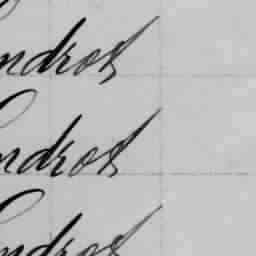 ndros
ndros
ndros